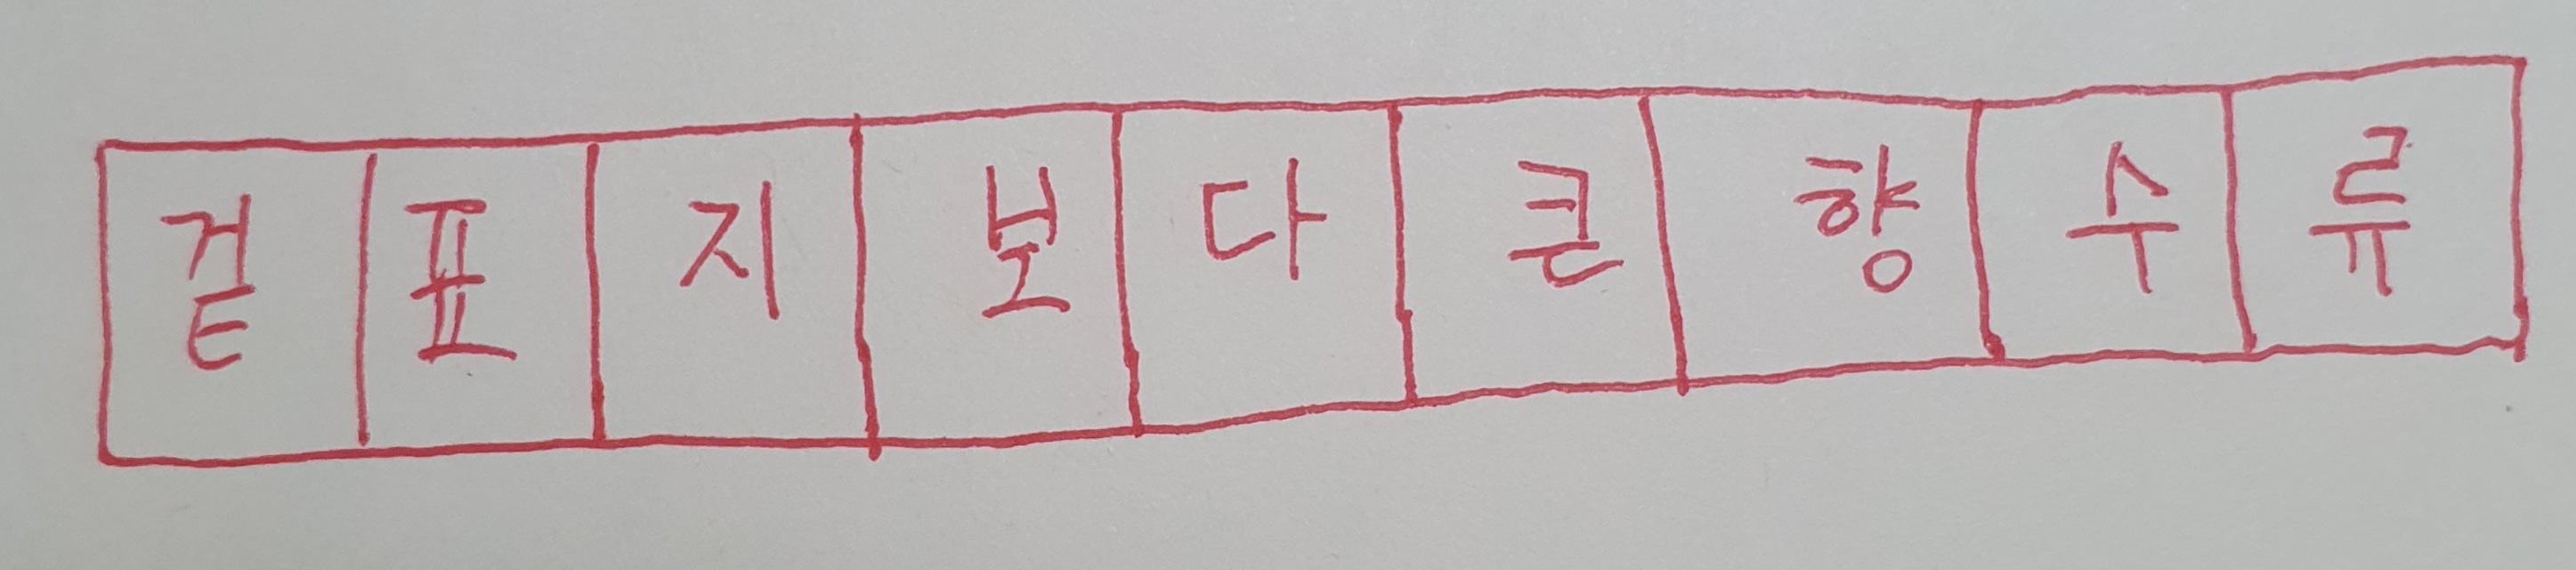 겉표지보다큰향수류